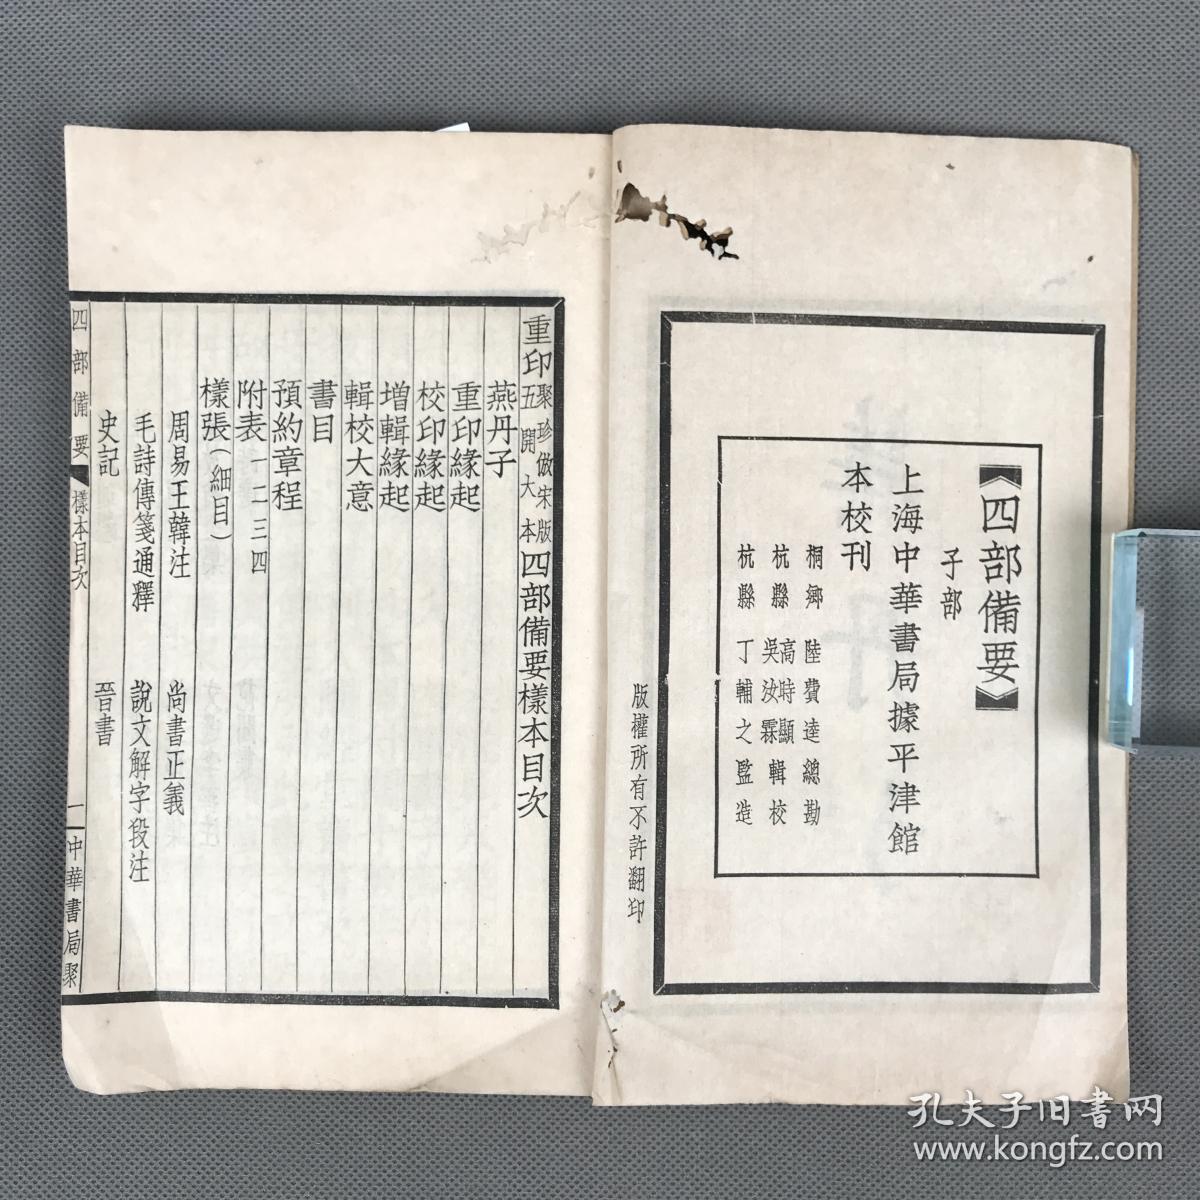 【四部備要】
子部
上海中華書局據平津館
本校刊
桐鄉 陸費逵總勘
杭縣 高時顯 輯校
吳汝霖
杭縣 丁輔之監造
版權所有不許翻印
重印聚珍倣宋版五開大本四部備要樣本目次
燕丹子
重印緣起
校印緣起
增輯緣起
輯校大意
書目
預約章程
附表一二三四
樣張（細目）
周易王韓注 尚書正義
毛詩傳箋通釋 說文解字段注
史記 晉書
四部備要 樣本目次 一 中華書局聚
孔夫子旧书网
www.kongfz.com